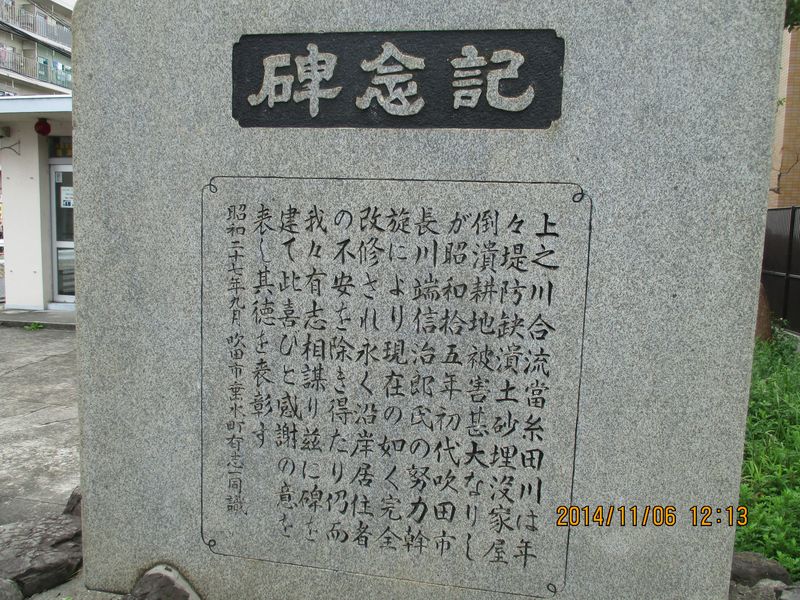 記念碑
上之川合流當糸田川は年
々堤防缺潰土砂埋没家屋
倒潰耕地被害甚大なりし
が昭和拾五年初代吹田市
長川端信治郎氏の努力幹
旋により現在の如く完全
改修され永く沿岸居住者
の不安を除き得たり仍而
我々有志相謀り茲に碑を
建て此喜びと感謝の意を
表し其徳を表彰す
昭和二十七年九月 吹田市垂水町有志一同識
2014/11/06 12:13